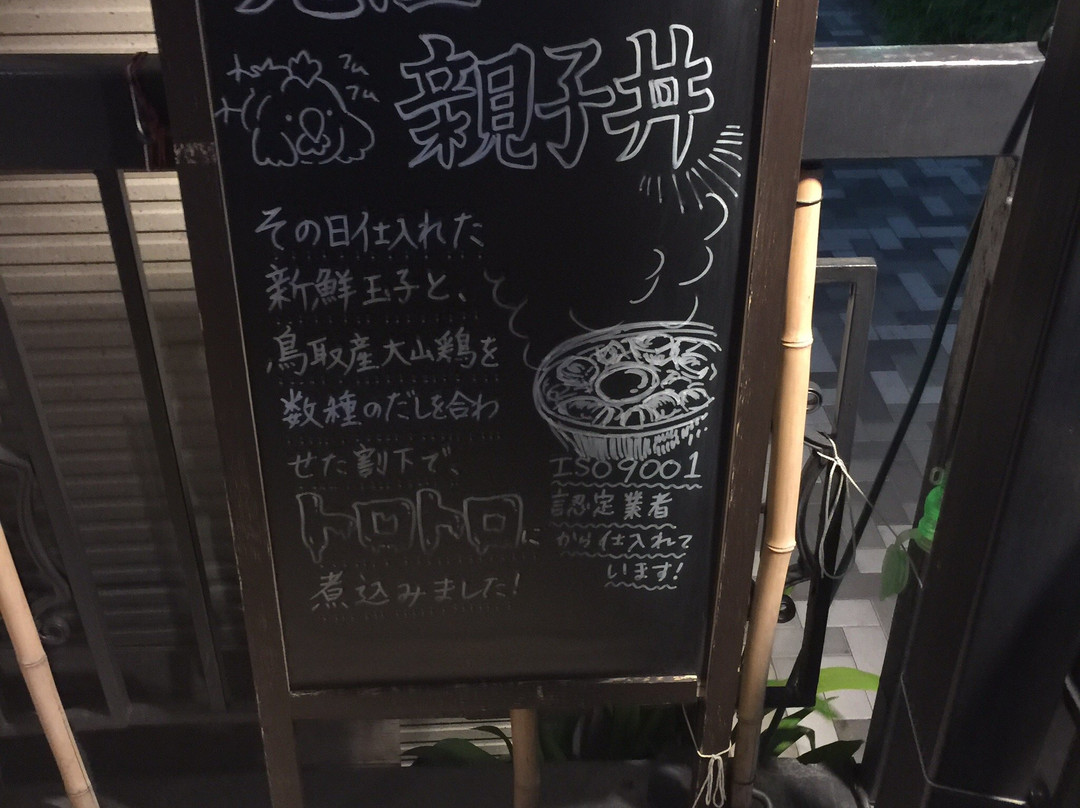 フワ
フワ
親子丼
その日仕入れた
新鮮玉子と、
鳥取産大山鶏を
数種のだしを合わ
せた割下で、
トロトロに
煮込みました!
ISO9001
認定業者
から仕入れて
います!